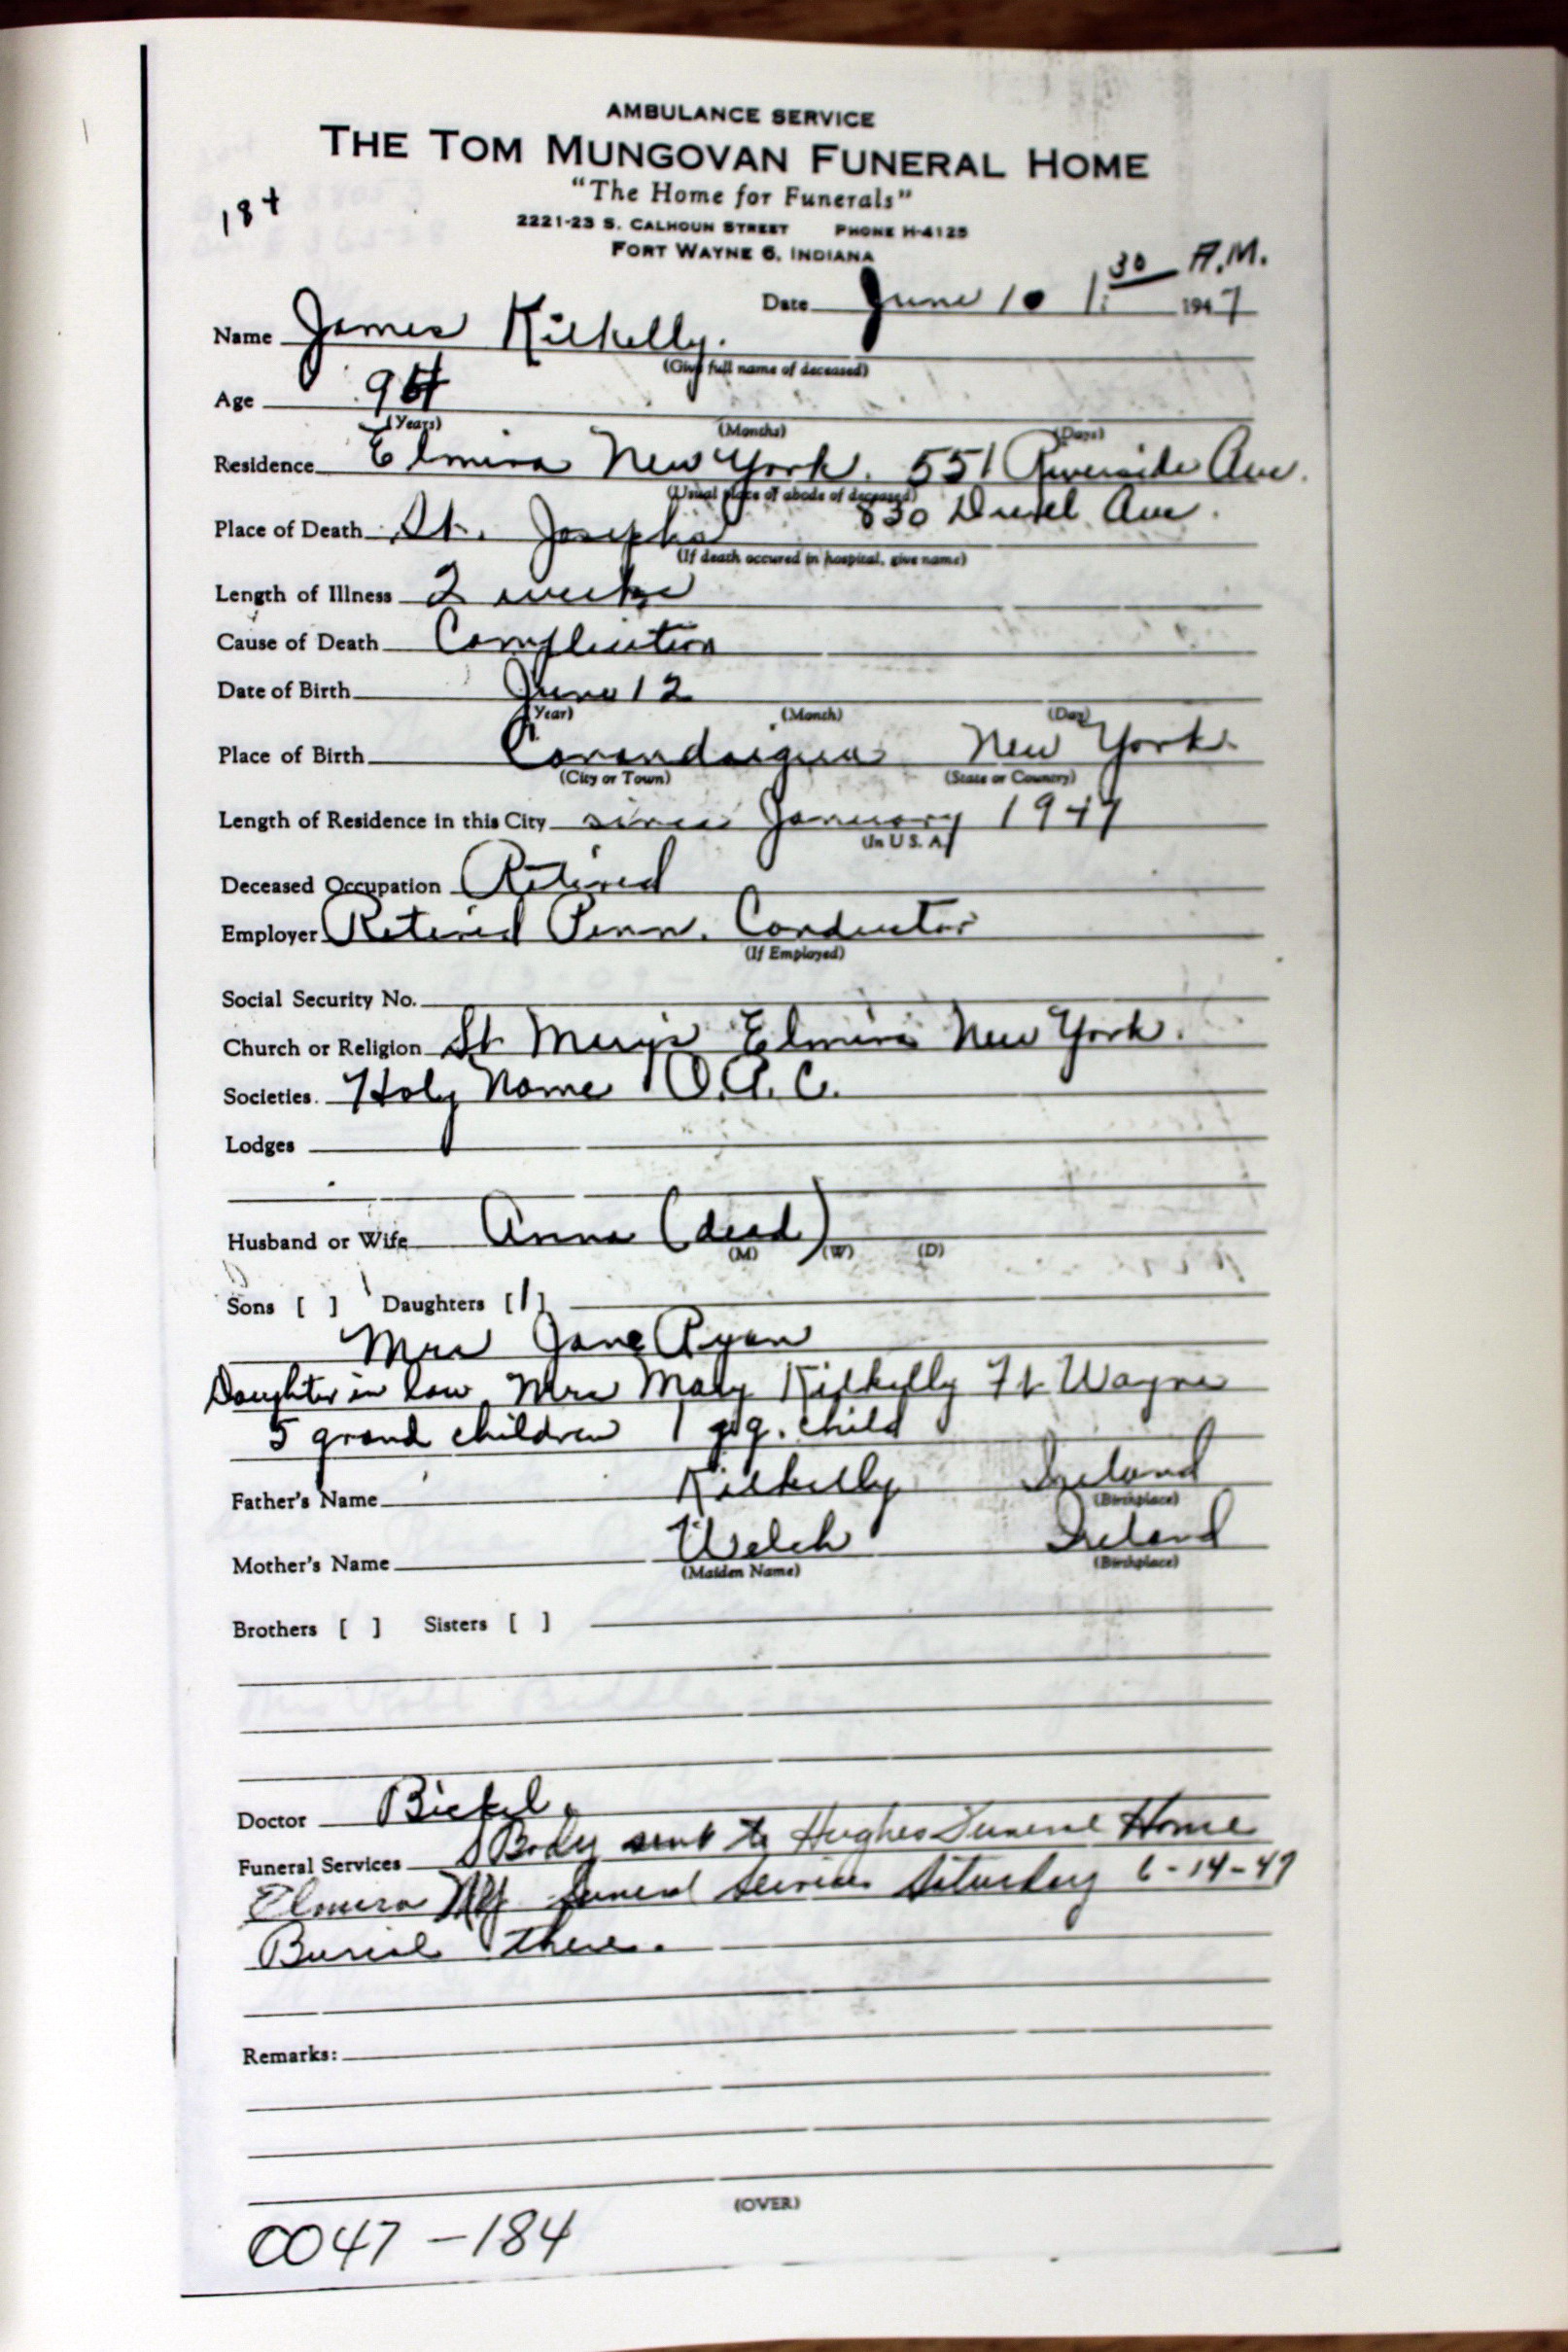 AMBULANCE SERVICE
THE TOM MUNGOVAN FUNERAL HOME
"The Home for Funerals"
184
2221-23 S. CALHOUN STREET PHONE H-4125
FORT WAYNE 6, INDIANA
Date June 10 1:30 A.M. 1947
Name James Kilkelly.
(Give full name of deceased)
Age 94
(Years) (Months) (Days)
Residence Elmira New York. 551 Riverside Ave.
(Usual place of abode of deceased)
830 Ave.
Place of Death St. Josephs
(If death occured in hospital, give name)
Length of Illness 2 weeks
Cause of Death Complication
Date of Birth June 12
(Year) (Month) (Day)
Place of Birth Canandaigua New York.
(City or Town) (State or Country)
Length of Residence in this City since January 1947
(In U S. A)
Deceased Occupation Retired
Employer Retired Penn. Conductor
(If Employed)
Social Security No.
Church or Religion St Mary's Elmira New York.
Societies. Holy Name
Lodges
Husband or Wife Anna (dead)
(M) (W) (D)
Sons [ ] Daughters [1]
Mrs Jane Ryan
Daughter in law Mrs Mary Kilkelly Ft Wayne
5 grand children 1 g.g. child
Father's Name Kilkelly Ireland
(Birthplace)
Mother's Name Welch Ireland
(Maiden Name) (Birthplace)
Brothers [ ] Sisters [ ]
Doctor Bickel.
Funeral Services Body sent to Hughes Funeral Home
Elmira NY funeral services Saturday 6-14-47
Burial there.
Remarks:
(OVER)
0047-184